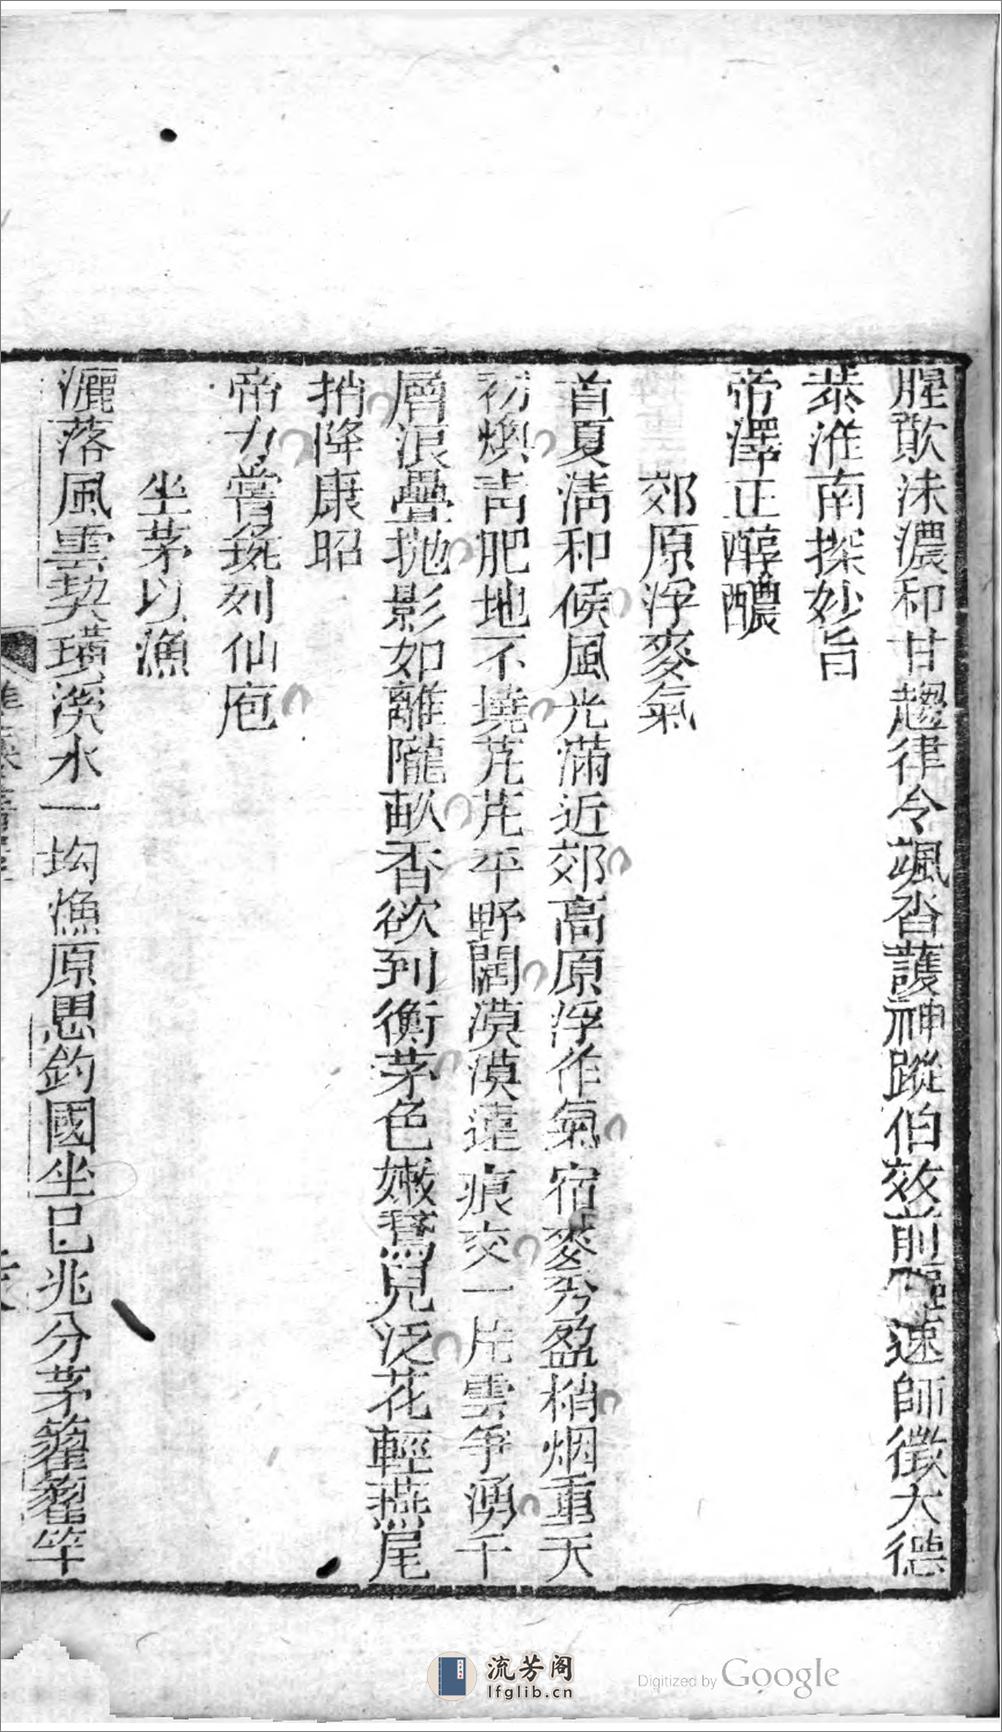 腥歕沫濃和甘趨律令颯沓護神蹤伯效前驅速師徵大德
恭淮南探妙旨
帝澤正醇醲
郊原浮麥氣
首夏淸和候風光滿近郊高原浮作氣宿麥秀盈梢烟重天
初燠靑肥地不墝芃芃平野闊漠漠遠痕交一片雲爭湧千
層浪疊拋影如離隴畝香欲到衡茅色嫩鵞兒泛花輕燕尾
捎降康昭
帝力嘗麥列仙庖
坐茅以漁
灑落風雲契璜溪水一坳漁原思釣國坐已兆分茅籊籊竿
流芳阁
lfglib.cn
Digitized by Google